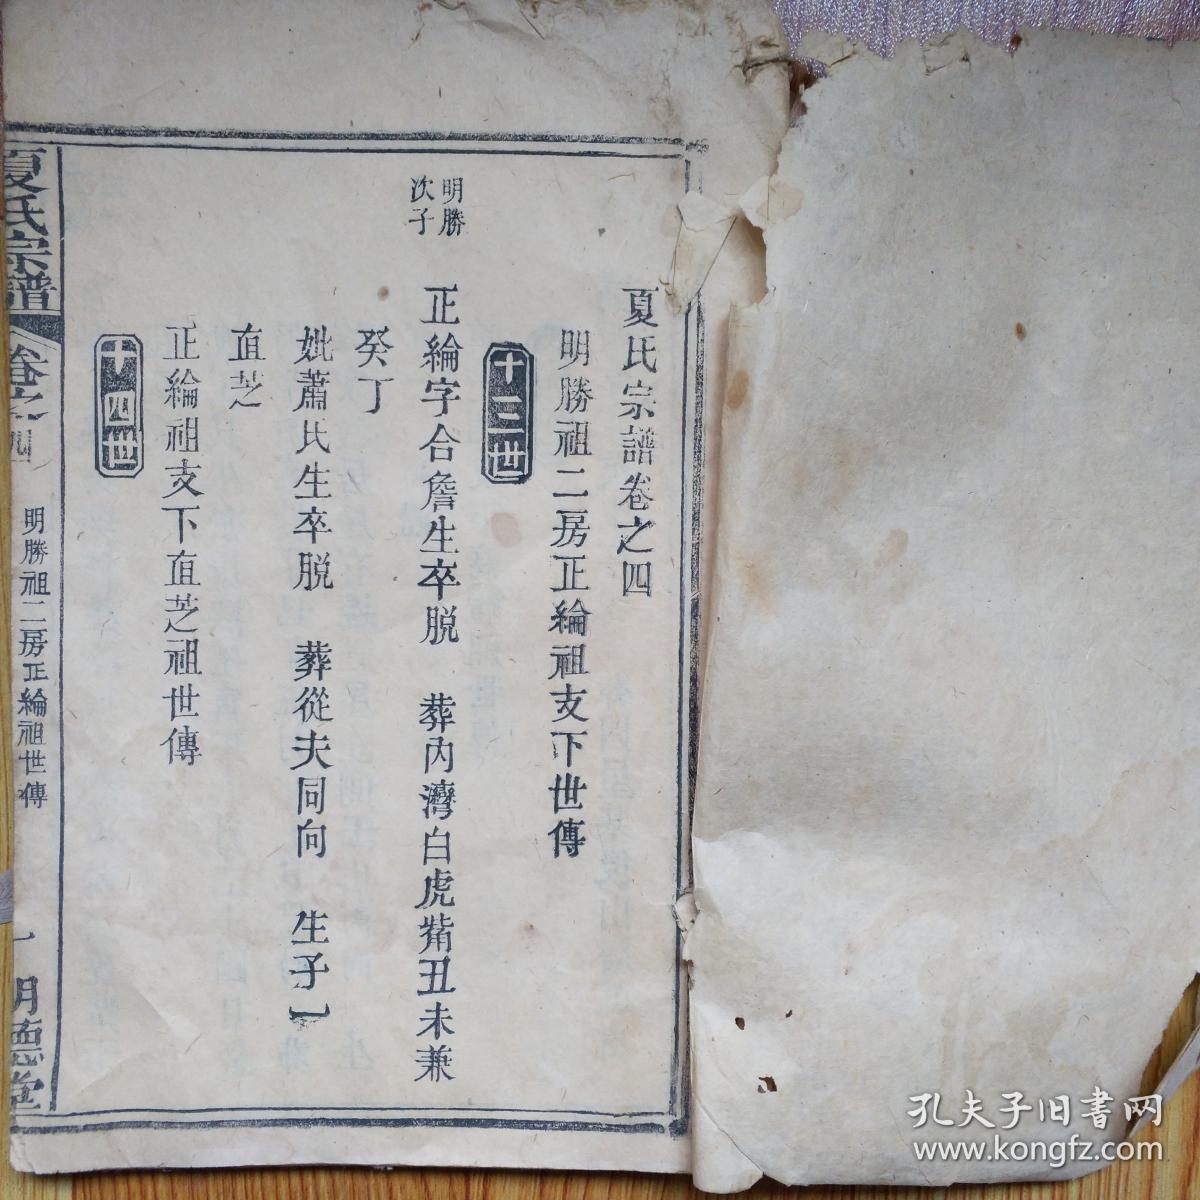 夏氏宗譜卷之四
明勝祖二房正綸祖支下世傳
十三世
明勝
次子
正綸字合詹生卒脱 葬內灣白虎觜丑未兼
癸丁
妣蕭氏生卒脱 葬從夫同向 生子一
直芝
正綸祖支下直芝祖世傳
十四世
夏氏宗譜 卷之四 明勝祖二房正綸祖世傳 一 明德堂
孔夫子旧书网
www.kongfz.com